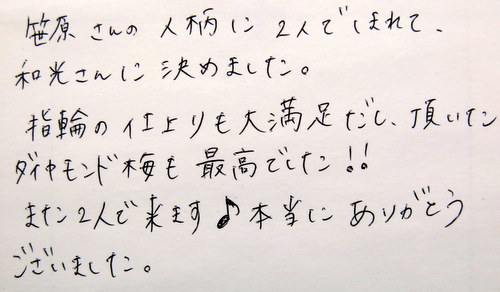 笹原さんの人柄に2人でほれて、
和光さんに決めました。
指輪の仕上りも大満足だし、頂いた
ダイヤモンド梅も最高でした!!
また2人で来ます♪本当にありがとう
ございました。